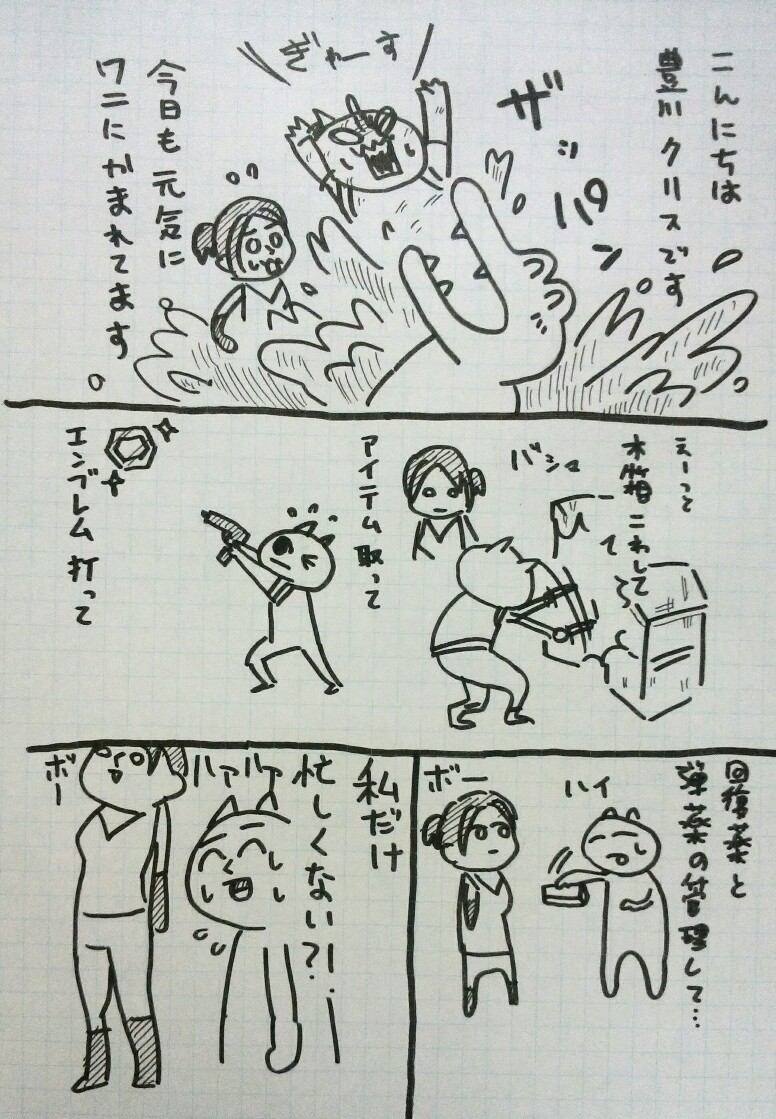 こんにちは
豊川 クリスです
ザッパン
ぎゃーす
今日も 元気に
ワニに かまれてます
えーっと
木箱 こわして
て
バシュ
アイテム 取って
エンブレム 打って
回復薬と
弾薬の管理して…
ハイ
ボー
私だけ
忙しくない!?
ハァハァ
ボー